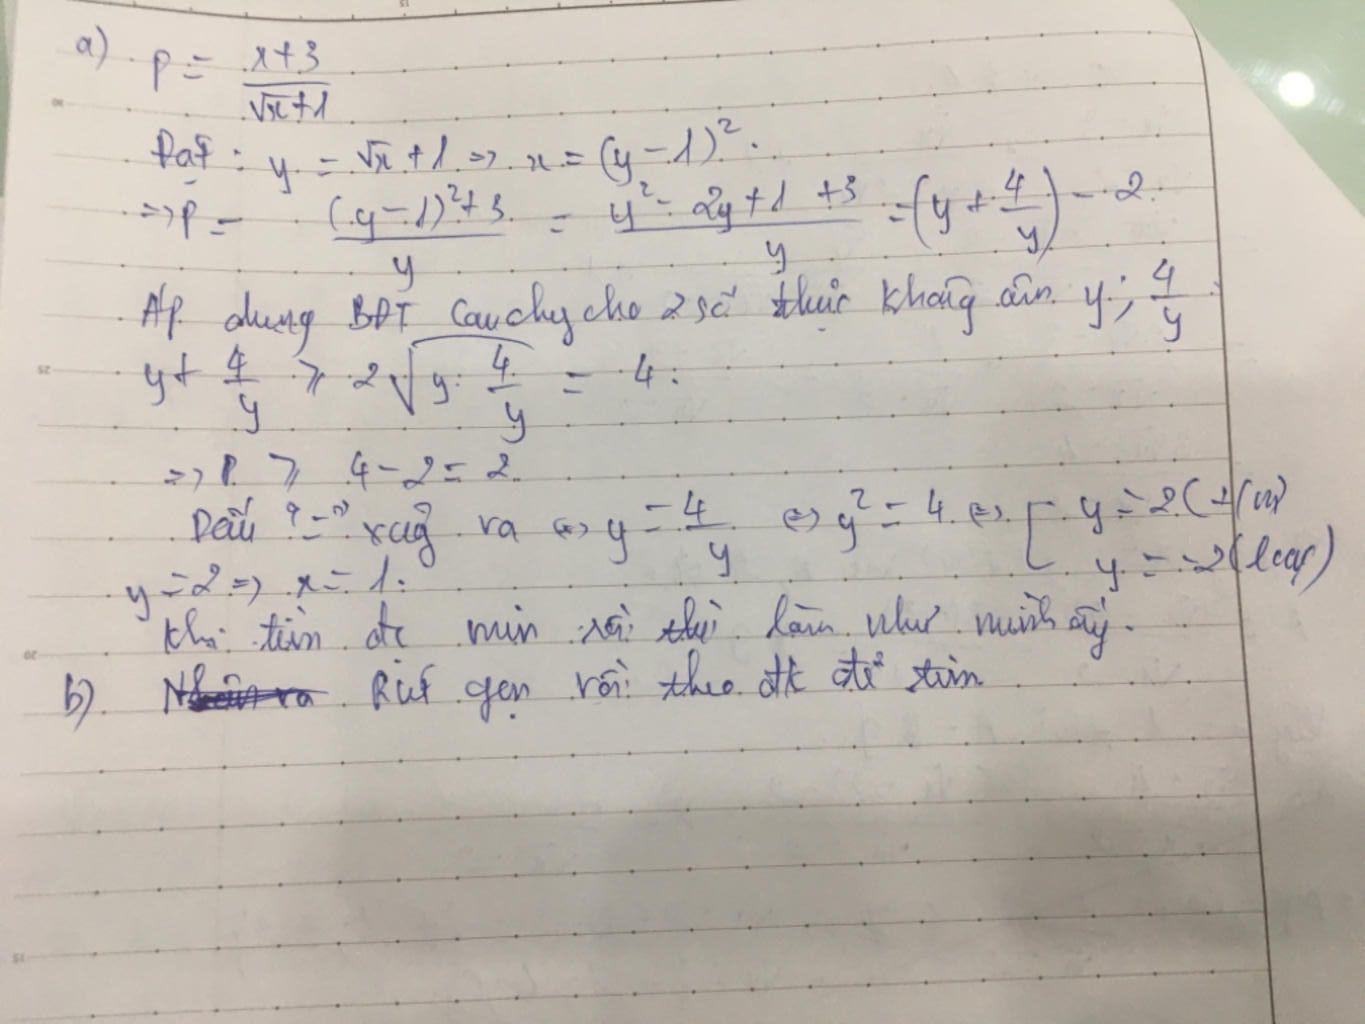 a) P = \frac{x+3}{\sqrt{x}+1}
Đặt : y = √x + 1 => x = (y - 1)².
=> P = \frac{(y-1)²+3}{y} = \frac{y² - 2y + 1 + 3}{y} = (y + \frac{4}{y}) - 2.
Áp dụng BĐT Cauchy cho 2 số thực không âm y; \frac{4}{y}
y + \frac{4}{y} ⩾ 2\sqrt{y \cdot \frac{4}{y}} = 4.
=> P ⩾ 4 - 2 = 2.
Dấu "=" xảy ra <=> y = \frac{4}{y} <=> y² = 4 <=> [ y = 2 (t/m)
y = -2 (loại)
y = 2 => x = 1.
Khi tìm đc min rồi thì làm như mình ấy.
b) Rút gọn rồi theo đk để tìm